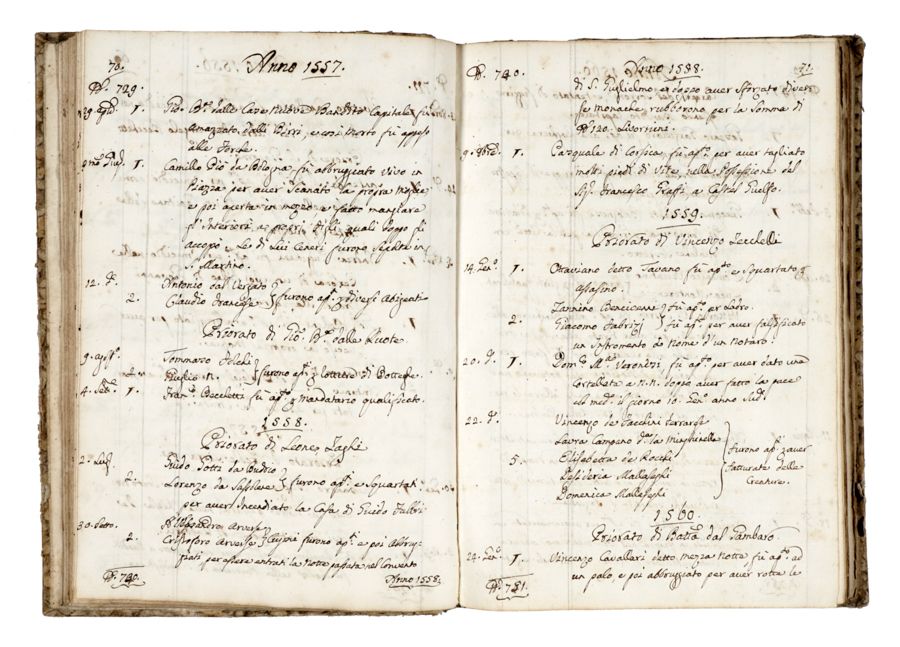 70.
Anno 1557.
N. 729.
29. ag. 1. Gio. Bta. dalle Case Nuove Bandito Capitale, fù
Amazzato dalli Birri, e così Morto fù appeso
alle Forche.
1. Camillo Pio da Bologna fù abbruggiato vivo in
Piazza per aver Scanato la propria Moglie
e poi aperta in mezzo e fatto mangiare
gl'Interiori ai proprj Figli quali doppo gli
accopò e Le di Lui Ceneri furono Sepolte in
S. Martino.
12. d.º Antonio dal Vergato
2. Claudio Francese } furono ap. p diversi Assassinti
Priorato di Gio. Bta. dalle Ruote.
9. agº. Tommaso
2. Giulio N. } furono ap. p rotture di Botteghe.
4. Sett. 1. Fran.º Becchetti fù ap.º p mandatario qualificato.
1558.
Priorato di Leone Zaghi
2. Lug. Guido Potti da Budrio
2. Lorenzo da Sassilone } furono ap.i e Squartati
per avere Incendiato la Casa di Guido Fabbri
30. detto. Alessandro Arveise
2. Cristoforo Arveise } Cugini furono ap.i e poi Abbrug-
giati per essere entrati la Notte passata nel Convento
N. 740.
Anno 1558.
N. 740.
Anno 1558.
71.
di S. Guglielmo, e doppo aver Sforzato diver-
se monache, rubborono per la Somma di
N 120. Livornine.
9. 8bre. 1. Pasquale di Corsica, fù ap.º per aver tagliato
molti piedi di Vite, nella Possessione del
Sig. Francesco Grassi a Castel Guelfo.
1559.
Priorato di Vincenzo Zecchelli
14. Gen.º 1. Ottaviano detto Tavano fù ap.to e Squartato p
assasino.
Zannino Bencivenni } fù ap.º per Ladro.
2. Giacomo Fabrizj } fù ap.º per aver falsificato
un Instromento a nome d'un Notaro.
20. d.º 1. Dom.º M.a Veronesi fù ap.to per aver dato una
Cortellata a N.N. doppo aver fatto la pace
col med.º il giorno 10. Gen.º anno Sud.º
22. d.º Vincenzo de Facchini ferrarese
Laura Campana d.a la Minghinella
5. Elisabetta de Rocchi
Desideria Mallaseghi
Domenica Mallaseghi
} furono ap.i p aver
fatturato delle
Creature.
1560.
Priorato di Batta. dal Tamburo
24. Gen.º 1. Vincenzo Cavallari detto mezza notte fù ap.º ad
un palo, e poi abbruggiato per aver rotte le
N. 751.